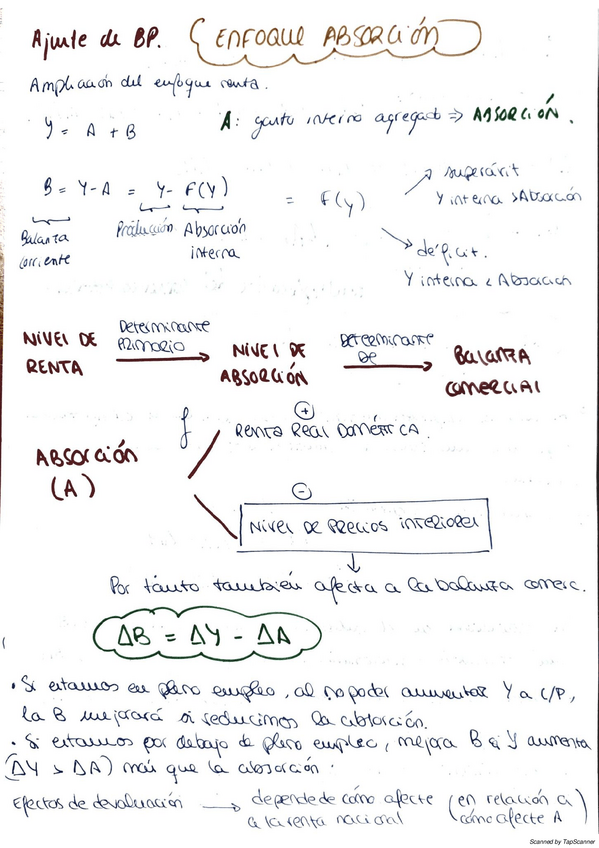 Ajuste de BP. ENFOQUE ABSORCIÓN
Ampliación del enfoque renta.
Y = A + B
A: gasto interno agregado => ABSORCIÓN.
B = Y - A = Y - F(Y) = F(y)
superávit
Y interna > Absorción
Balanza corriente
Producción
Absorción interna
déficit.
Y interna < Absorción
NIVEL DE RENTA
Determinante PRIMARIO
NIVEL DE ABSORCIÓN
DETERMINANTE DE
BALANZA COMERCIAL
ABSORCIÓN (A)
f
+
RENTA REAL DOMÉSTICA.
-
NIVEL DE PRECIOS INTERIORES
Por tanto también afecta a la balanza comerc.
ΔB = ΔY - ΔA
• Si estamos en pleno empleo, al no poder aumentar Y a C/P,
la B mejorará si reducimos la absorción.
• Si estamos por debajo de pleno empleo, mejora B si Y aumenta
(ΔY > ΔA) más que la absorción.
Efectos de devaluación → depende de cómo afecte (en relación a)
a la renta nacional (cómo afecte A)
Scanned by TapScanner